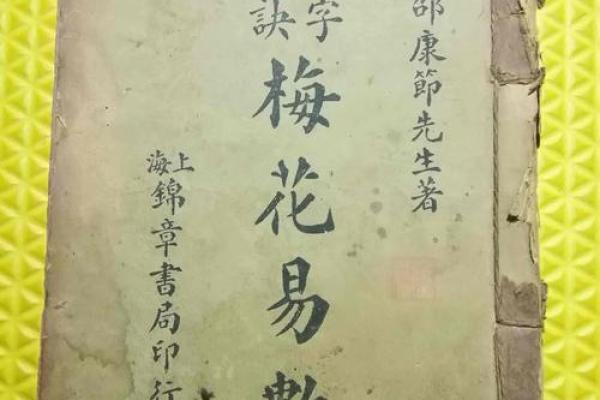 邵康節先生著
字訣
梅花易數
上海
錦章書局印行